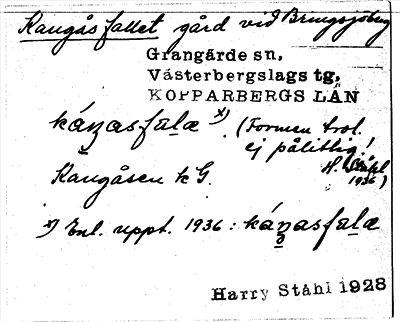 Kangåsfallet gård vid Bringsjöberg
Grangärde sn,
Västerbergslags tg,
KOPPARBERGS LÄN
káŋasfalæ x). (Formen trol.
ej pålitlig!
H. Ståhl
1936)
Kangåsen k G.
x) Enl. uppt. 1936: káŋasfalæ
Harry Ståhl 1928